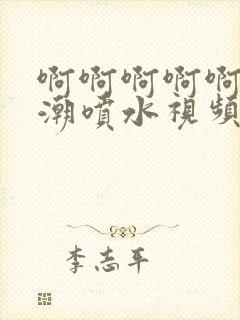 啊啊啊啊啊
潮噴水視頻
李志平